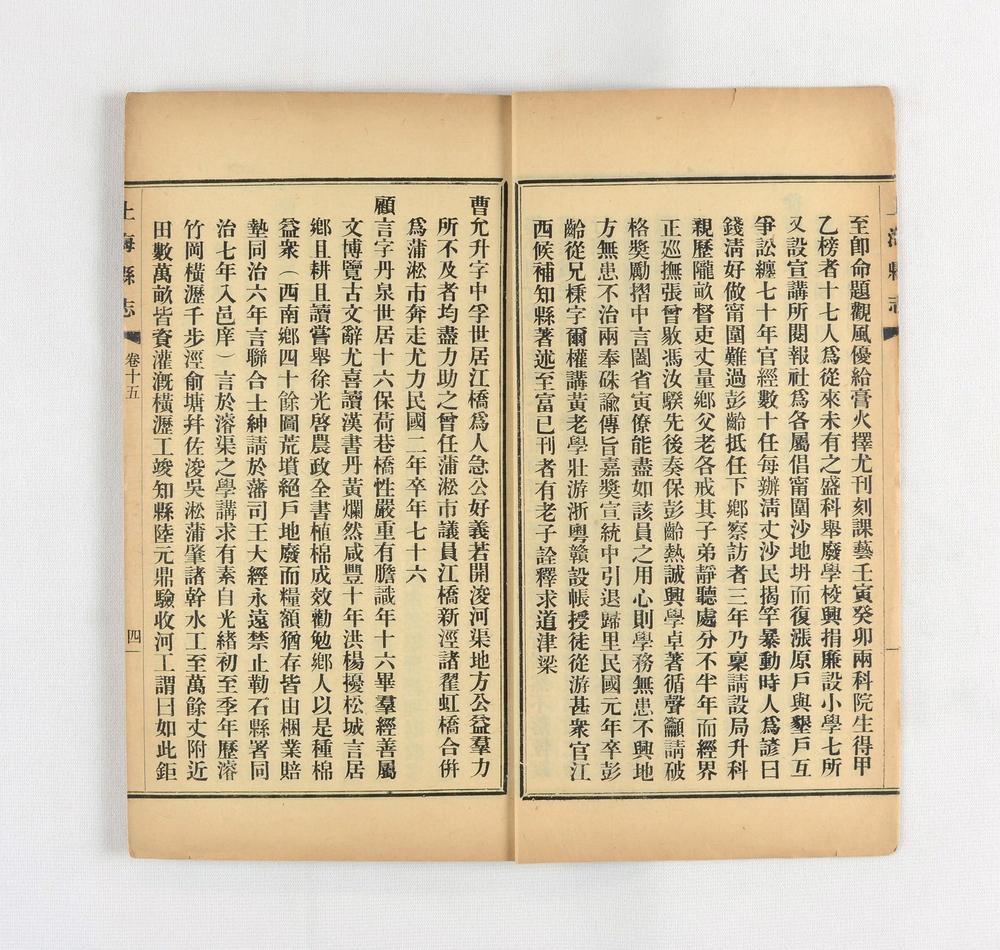 上海縣志
至卽命題觀風優給膏火擇尤刊刻課藝壬寅癸卯兩科院生得甲
乙榜者十七人爲從來未有之盛科舉廢學校興捐廉設小學七所
又設宣講所閱報社爲各屬倡甯圍沙地坍而復漲原戶與墾戶互
爭訟纏七十年官經數十任每辦淸丈沙民揭竿暴動時人爲諺曰
錢淸好做甯圍難過彭齡抵任下鄉察訪者三年乃稟請設局升科
親歷隴畝督吏丈量鄉父老各戒其子弟靜聽處分不半年而經界
正巡撫張曾敭馮汝騤先後奏保彭齡熱誠興學卓著循聲籲請破
格獎勵摺中言闔省寅僚能盡如該員之用心則學務無患不興地
方無患不治兩奉硃諭傳旨嘉獎宣統中引退歸里民國元年卒彭
齡從兄樣字爾權講黃老學壯游浙粵贛設帳授徒從游甚衆官江
西候補知縣著述至富已刊者有老子詮釋求道津梁
曹允升字中孚世居江橋爲人急公好義若開浚河渠地方公益羣力
所不及者均盡力助之曾任蒲淞市議員江橋新涇諸翟虹橋合併
爲蒲淞市奔走尤力民國二年卒年七十六
顧言字丹泉世居十六保荷巷橋性嚴重有膽識年十六畢羣經善屬
文博覽古文辭尤喜讀漢書丹黃爛然咸豐十年洪楊擾松城言居
鄉且耕且讀嘗舉徐光啓農政全書植棉成效勸勉鄉人以是種棉
益衆（西南鄉四十餘圖荒墳絕戶地廢而糧額猶存皆由梱業賠
墊同治六年言聯合士紳請於藩司王大經永遠禁止勒石縣署同
治七年入邑庠）言於溶渠之學講求有素自光緖初至季年歷溶
竹岡橫瀝千步涇俞塘幷佐浚吳淞蒲肇諸幹水工至萬餘丈附近
田數萬畝皆資灌漑橫瀝工竣知縣陸元鼎驗收河工謂曰如此鉅
上海縣志
卷十五
四